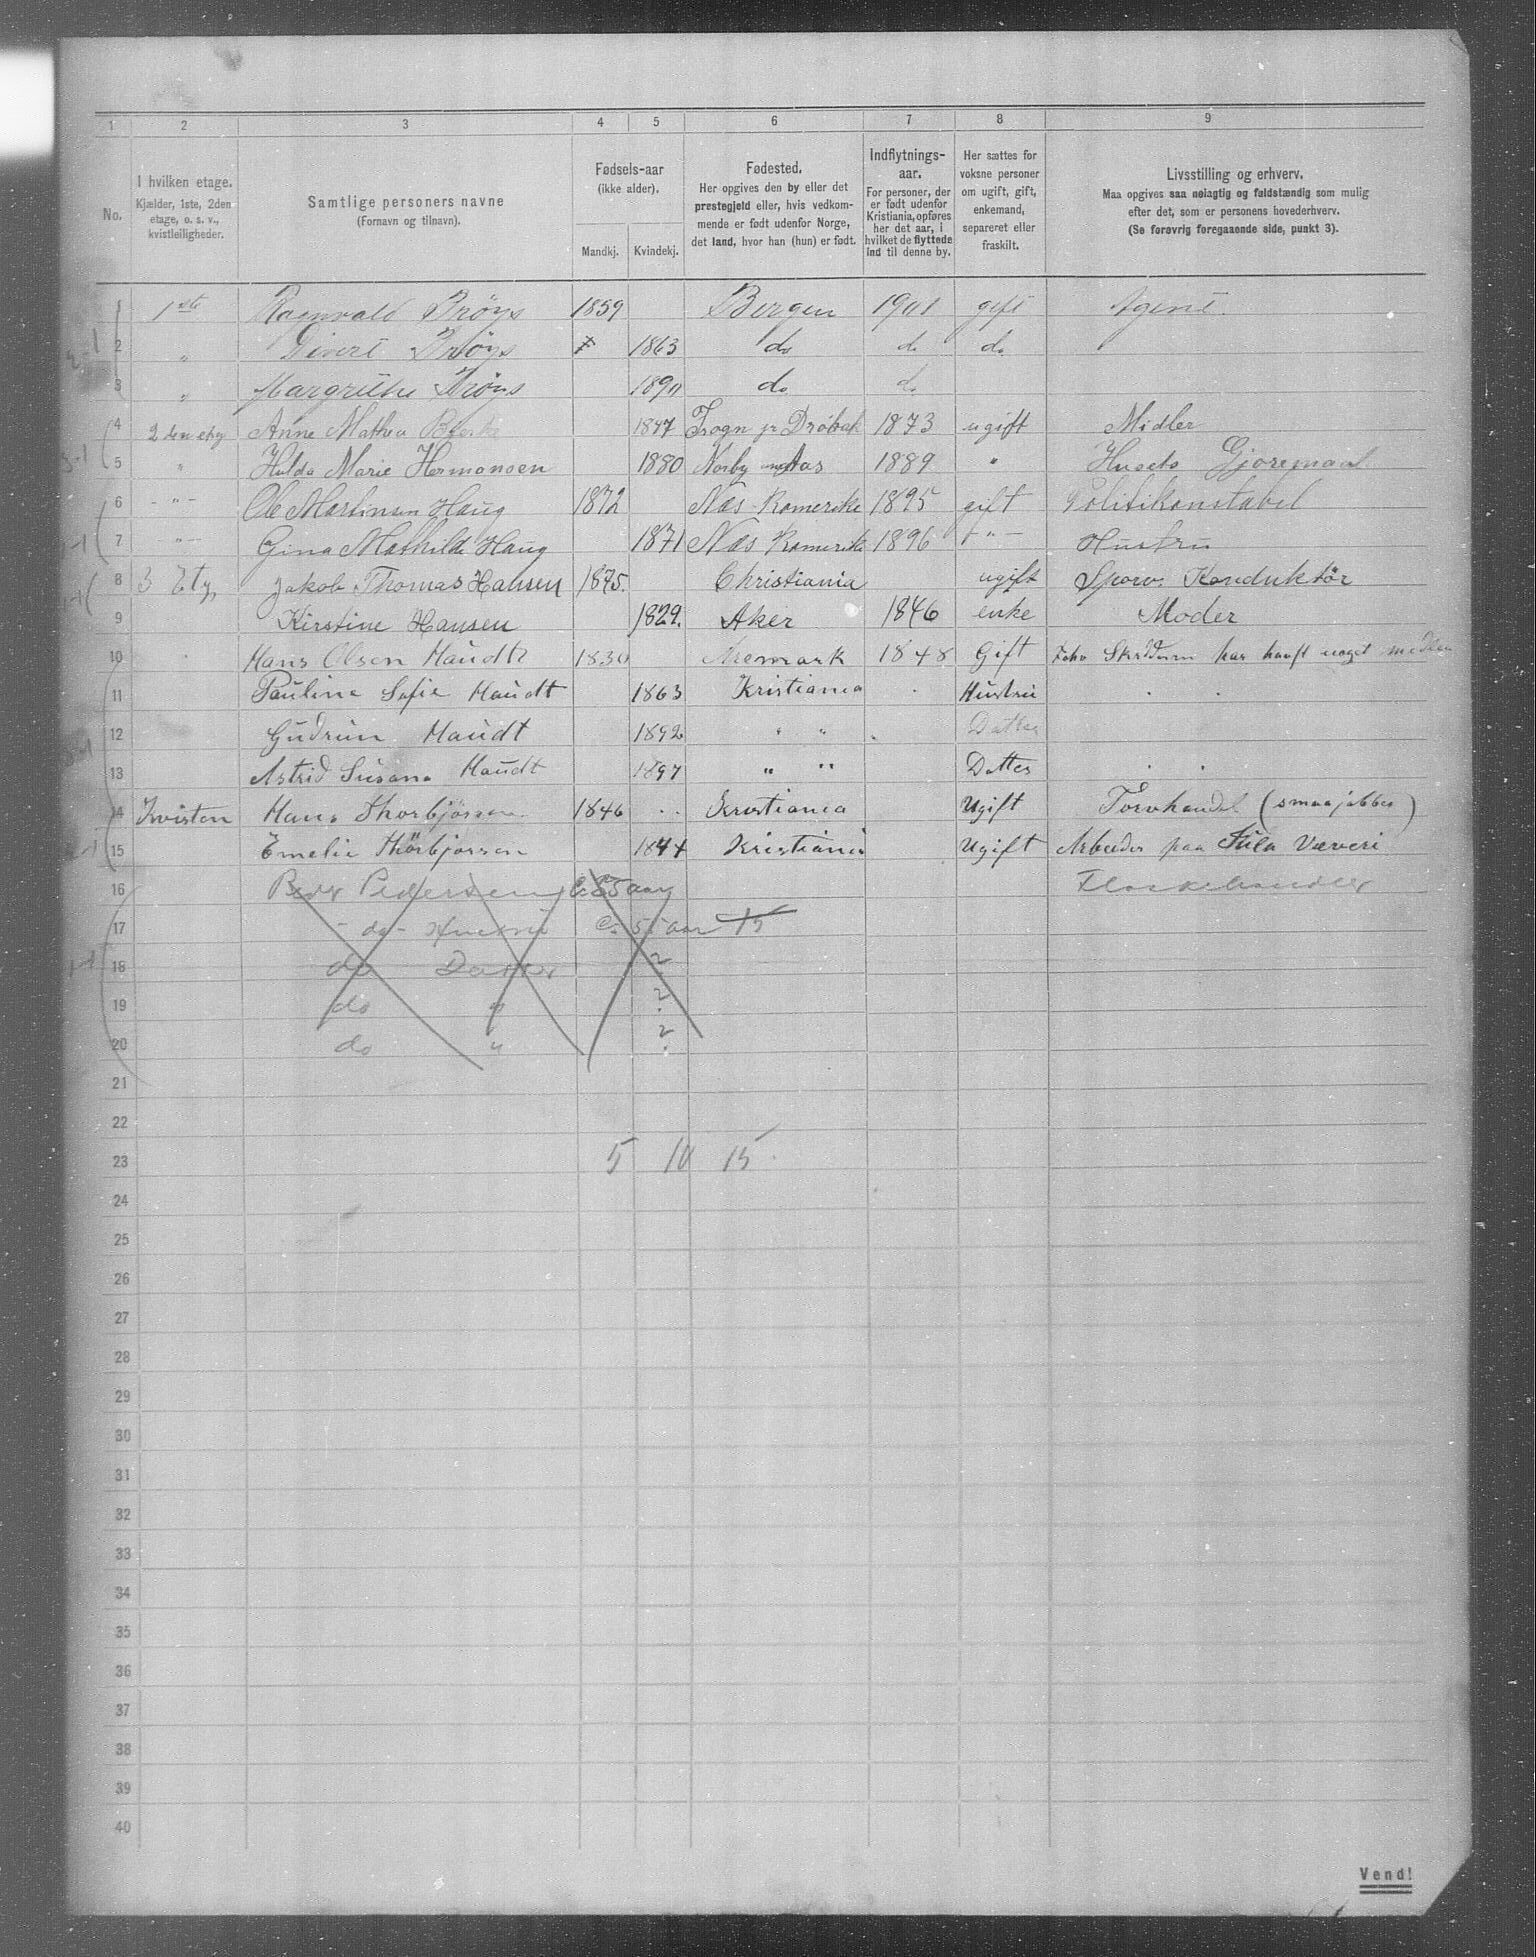 1 2 3 4 5 6 7 8 9
No.
I hvilken etage.
Kjælder, 1ste, 2den
etage, o. s. v.,
kvistleiligheder.
Samtlige personers navne
(Fornavn og tilnavn).
Fødsels-aar
(ikke alder).
Mandkj. Kvindekj.
Fødested.
Her opgives den by eller det
prestegjeld eller, hvis vedkom-
mende er født udenfor Norge,
det land, hvor han (hun) er født.
Indflytnings-
aar.
For personer, der
er født udenfor
Kristiania, opføres
her det aar, i
hvilket de flyttede
ind til denne by.
Her sættes for
voksne personer
om ugift, gift,
enkemand,
separeret eller
fraskilt.
Livsstilling og erhverv.
Maa opgives saa nøiagtig og fuldstændig som mulig
efter det, som er personens hovederhverv.
(Se forøvrig foregaaende side, punkt 3).
1 1ste Ragnvald Brøys 1859 Bergen 1901 gift Agent.
2 " Sivert Brøys 1863 do do do
3 " Margrethe Brøys 1890 do do
4 2den etg Anne Mathea 1847 Frogn pr Drøbak 1873 ugift Midler
5 " Hulda Marie Hermansen 1880 Norby Aas 1889 " Husets Gjøremaal
6 - " - Ole Martinsen Haug 1872 Næs Romerike 1895 gift Politikonstabel
7 - " - Gina Mathilde Haug 1871 Næs Romerike 1896 - " - Hustru
8 3 Etg, Jakob Thomas Hansen 1875. Christiania ugift Sporv. Konduktør
9 Kirstine Hansen 1829. Aker 1846 enke Moder
10 Hans Olsen Haudt 1830 Aremark 1848 Gift har havt noget
11 Pauline Sofie Haudt 1863 Kristiania Hustru
12 Gudrun Haudt 1892 " " Datter
13 Astrid Susana Haudt 1897 " " Datter
14 Kvisten Hans Thorbjørnsen 1846 Kristiania Ugift Torvhandel (smaajobber)
15 Emelie Thorbjørsen 1844 Kristiania Ugift Arbeider paa Hula Væveri
16 Peder Pedersen C. 55 aar Flaskehandler
17 - do - Hustru C. 55 aar 15
18 do Datter ?
19 do " ?
20 do " ?
21
22
23 5 10 15
24
25
26
27
28
29
30
31
32
33
34
35
36
37
38
39
40
Vend!